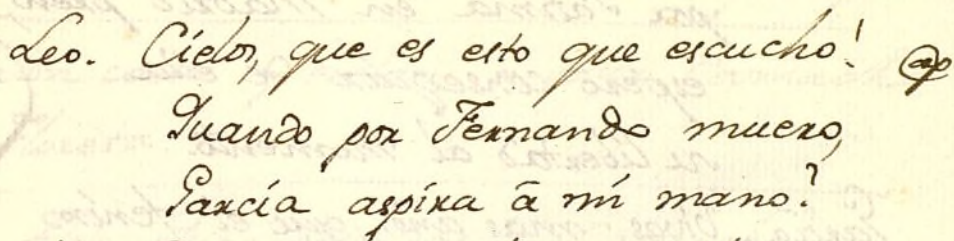 Leo. Cielos, que es esto que escucho! ap
Quando por Fernando muero,
Garcia aspira à mi mano?